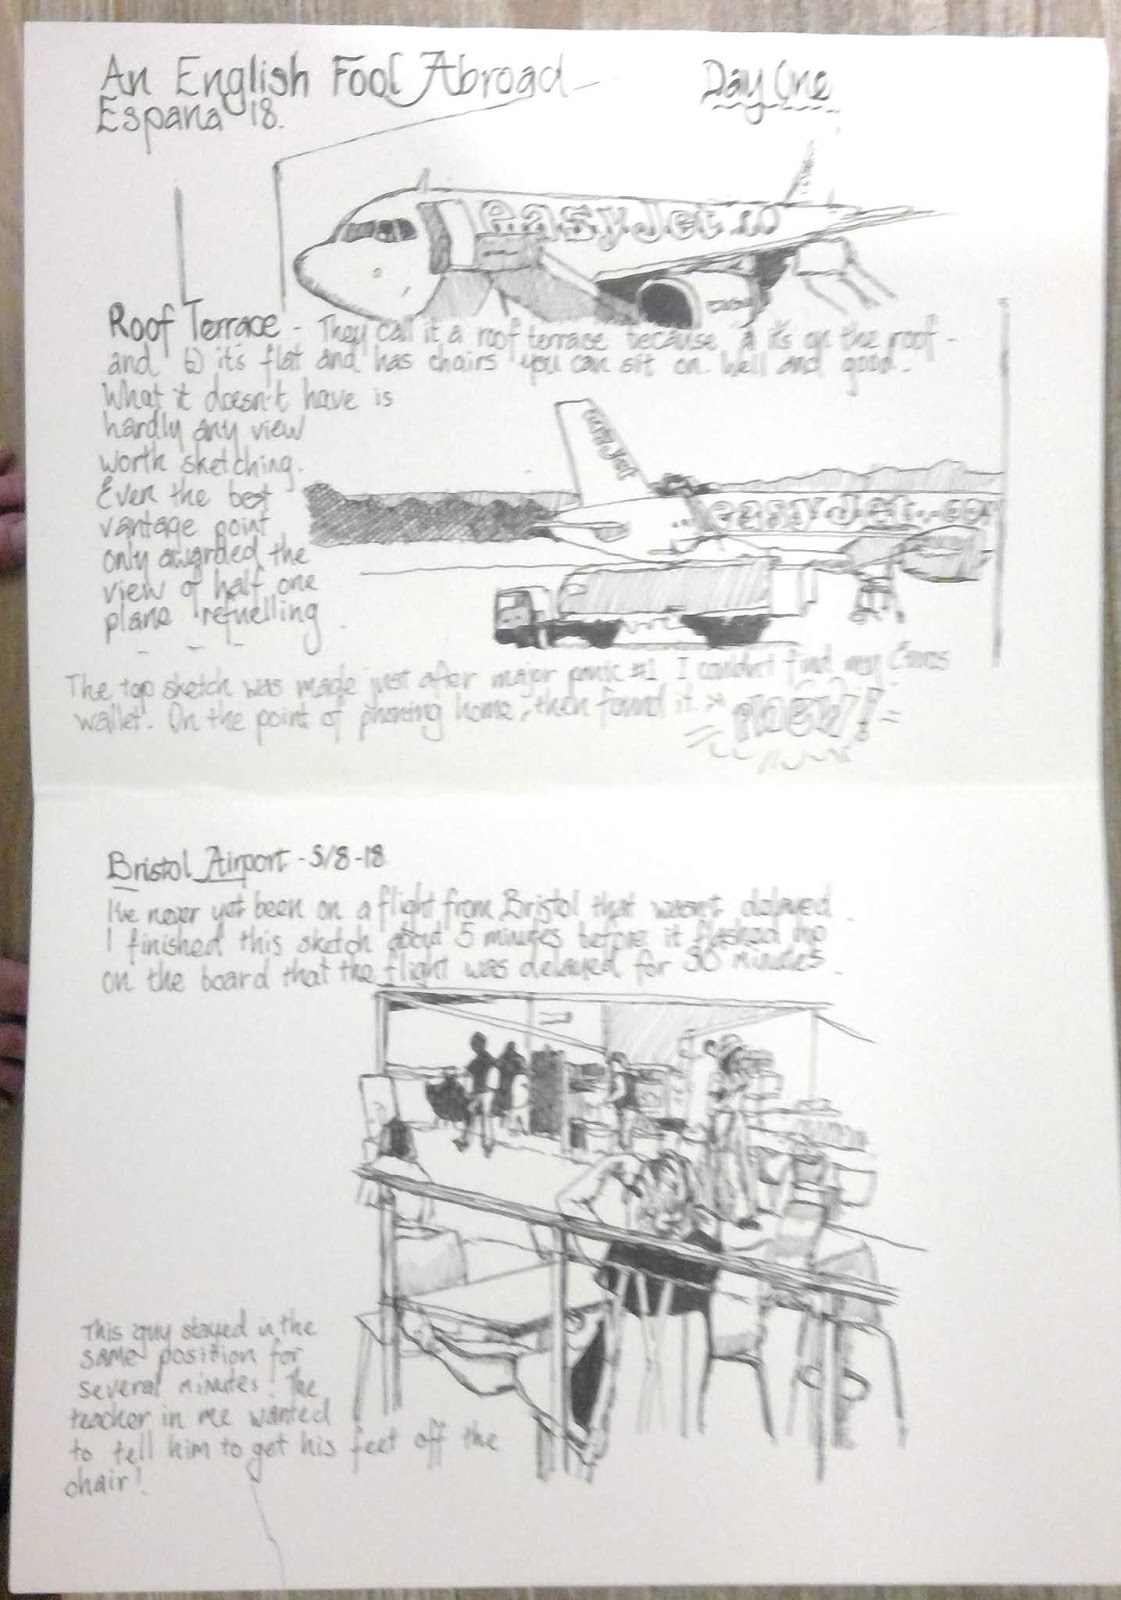 An English Fool Abroad
Espana '18.
Day One
easyJet.co
Roof Terrace - They call it a roof terrace because a it's on the roof -
and b) it's flat and has chairs you can sit on. Well and good.
What it doesn't have is
hardly any view
worth sketching.
Even the best
vantage point
only awarded the
view of half one
plane refuelling
easyJet
easyJet.com
The top sketch was made just after major panic #1. I couldn't find my Euros
wallet. On the point of phoning home, then found it. PHEW!
Bristol Airport - 5/8-18
I've never yet been on a flight from Bristol that wasn't delayed.
I finished this sketch about 5 minutes before it flashed up
on the board that the flight was delayed for 30 minutes.
This guy stayed in the
same position for
several minutes. The
teacher in me wanted
to tell him to get his feet off the
chair!